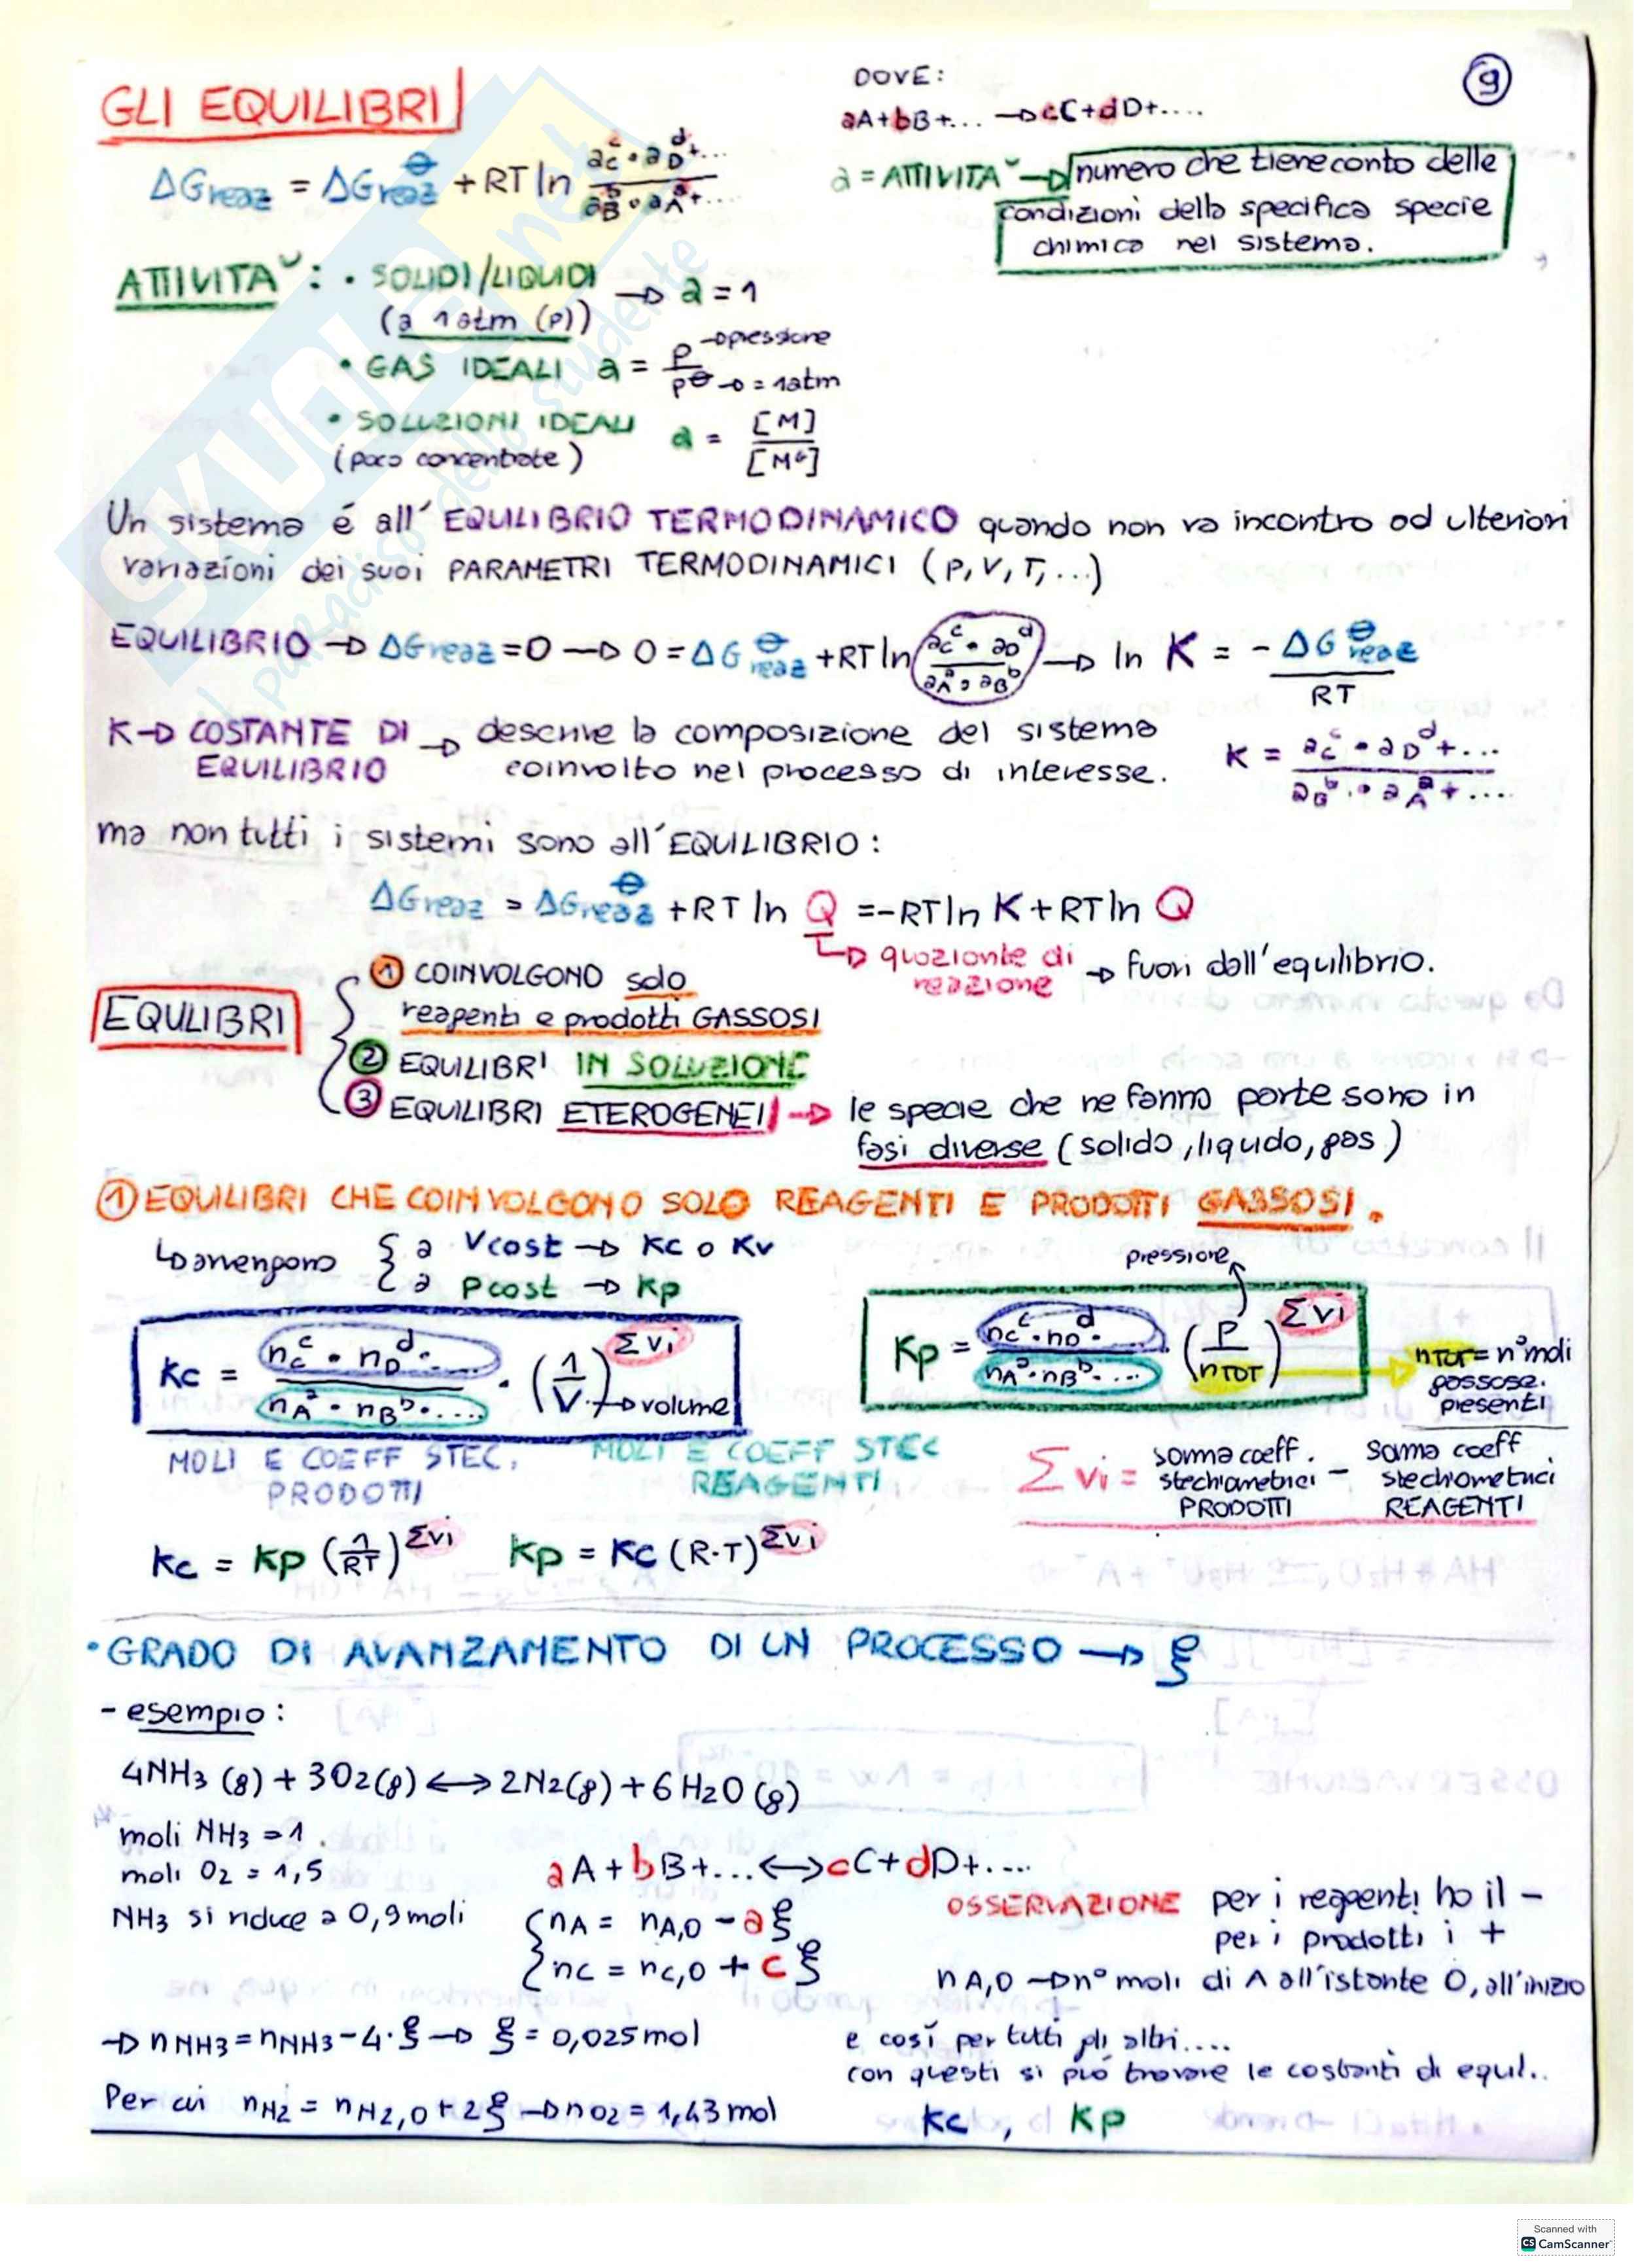 9
GLI EQUILIBRI
DOVE:
aA+bB+... → cC+dD+....
ΔGreaz = ΔG⊖reaz + RT ln (aC^c • aD^d+...)/(aB^b • aA^a+...)
a = ATTIVITA' → numero che tiene conto delle
condizioni della specifica specie
chimica nel sistema.
ATTIVITA': • SOLIDI/LIQUIDI → a = 1
(a 1 atm (P))
• GAS IDEALI a = P/P⊖ → pressione → = 1atm
• SOLUZIONI IDEALI a = [M]/[M⊖]
(poco concentrate)
Un sistema é all'EQUILIBRIO TERMODINAMICO quando non va incontro ad ulteriori
variazioni dei suoi PARAMETRI TERMODINAMICI (P, V, T, ...)
EQUILIBRIO → ΔGreaz = 0 → 0 = ΔG⊖reaz + RT ln (aC^c • aD^d)/(aA^a • aB^b) → ln K = - ΔG⊖reaz/RT
K → COSTANTE DI → descrive la composizione del sistema
EQUILIBRIO coinvolto nel processo di interesse.
K = (aC^c • aD^d+...)/(aB^b • aA^a+....)
ma non tutti i sistemi sono all'EQUILIBRIO:
ΔGreaz = ΔG⊖reaz + RT ln Q = -RT ln K + RT ln Q
→ quoziente di → fuori dall'equilibrio.
reazione
EQULIBRI
① COINVOLGONO solo
reagenti e prodotti GASSOSI
② EQUILIBRI IN SOLUZIONE
③ EQUILIBRI ETEROGENEI → le specie che ne fanno parte sono in
fasi diverse (solido, liquido, gas)
① EQUILIBRI CHE COINVOLGONO SOLO REAGENTI E PRODOTTI GASSOSI.
↳ avvengono { a Vcost → Kc o Kv
a Pcost → Kp
pressione
Kc = (nC^c • nD^d.....)/(nA^a • nB^b.....) • (1/V)^Σvi → volume
Kp = (nC^c • nD^d •)/(nA^a • nB^b • ...) (P/nTOT)^Σvi
nTOT = n° moli
gassose.
presenti
MOLI E COEFF STEC.
PRODOTTI
MOLI E COEFF STEC
REAGENTI
Σvi = somma coeff. stechiometrici PRODOTTI - somma coeff. stechiometrici REAGENTI
Kc = Kp (1/RT)^Σvi Kp = Kc (R·T)^Σvi
• GRADO DI AVANZAMENTO DI UN PROCESSO → ξ
- esempio:
4NH3 (g) + 3O2(g) ↔ 2N2(g) + 6H2O (g)
moli NH3 = 1.
moli O2 = 1,5
NH3 si riduce a 0,9 moli
aA + bB+... ↔ cC+dD+....
{ nA = nA,0 - aξ
nC = nC,0 + cξ
OSSERVAZIONE per i reagenti ho il -
per i prodotti i +
nA,0 → n° moli di A all'istante 0, all'inizio
→ nNH3 = nNH3 - 4·ξ → ξ = 0,025 mol
e cosí per tutti gli altri....
con questi si può trovare le costanti di equil..
Per cui nH2 = nH2,0 + 2ξ → nO2 = 1,43 mol
Kc, Kp
SKUOLA.net
il paradiso dello studente
Scanned with
CS CamScanner